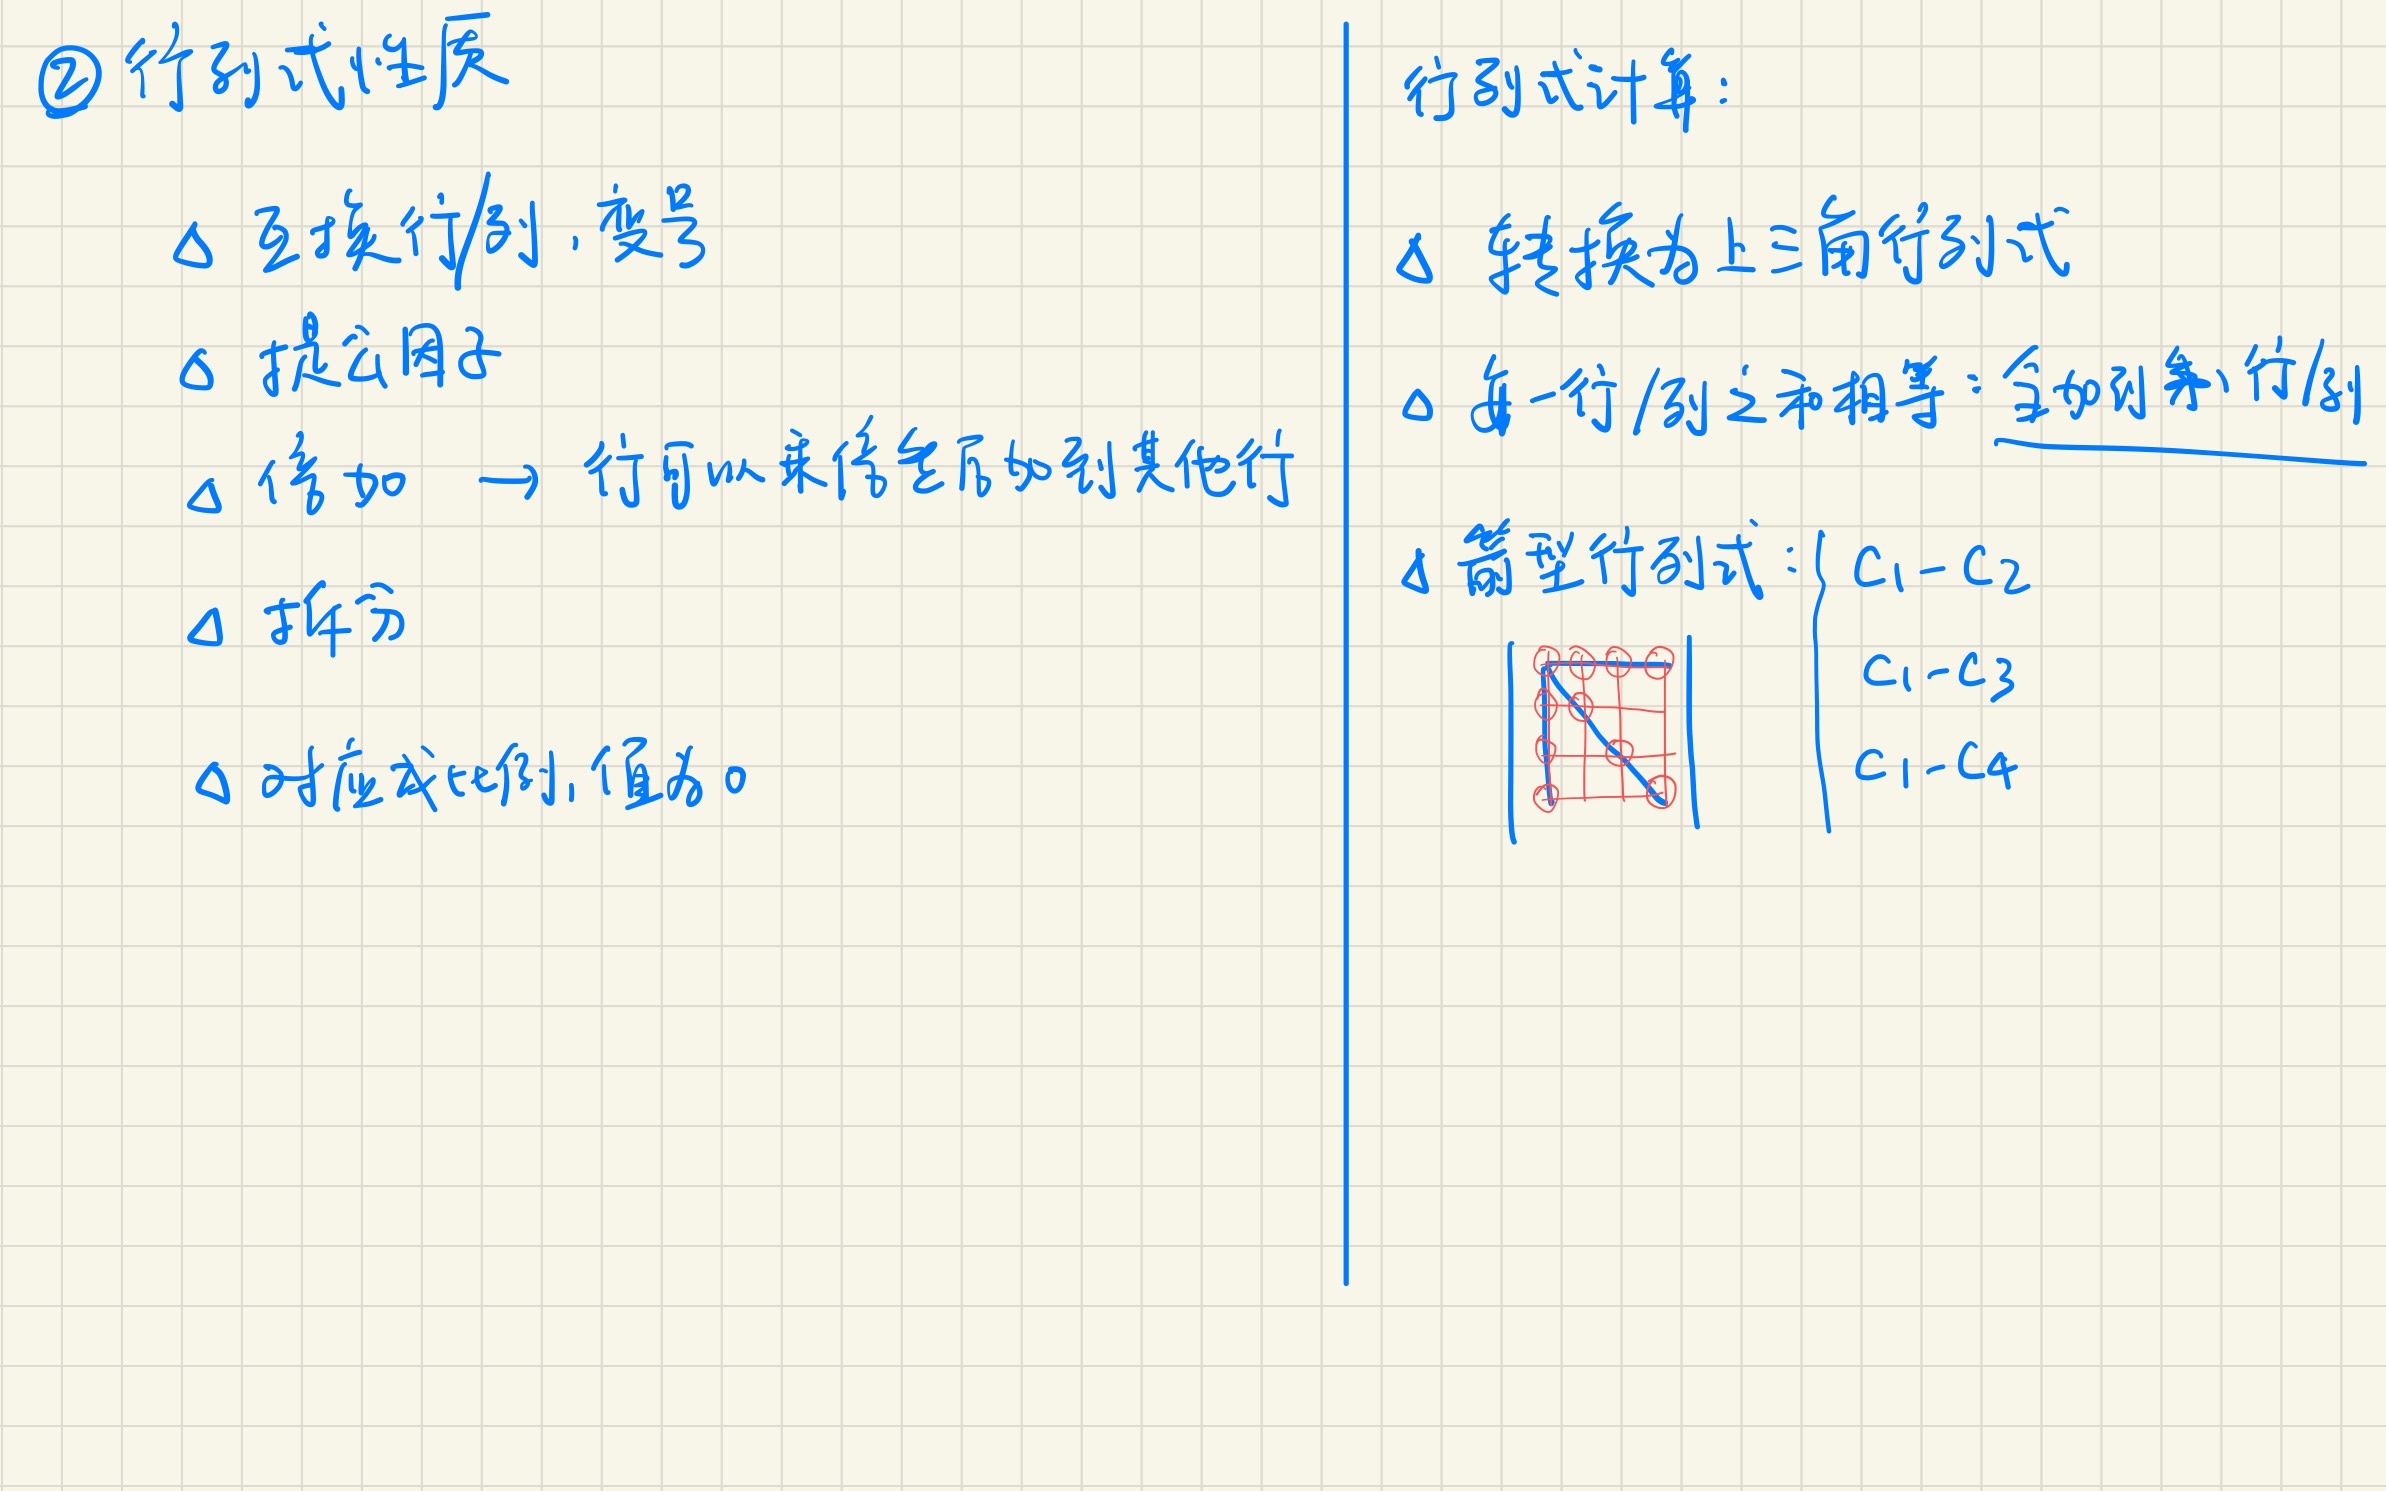 ② 行列式性质
△ 互换行/列,变号
△ 提公因子
△ 倍加 → 行可以乘倍至后加到其他行
△ 拆分
△ 对应成比例,值为0
行列式计算:
△ 转换为上三角行列式
△ 每一行/列之和相等:全加到第一行/列
△ 箭型行列式:
C1-C2
C1-C3
C1-C4